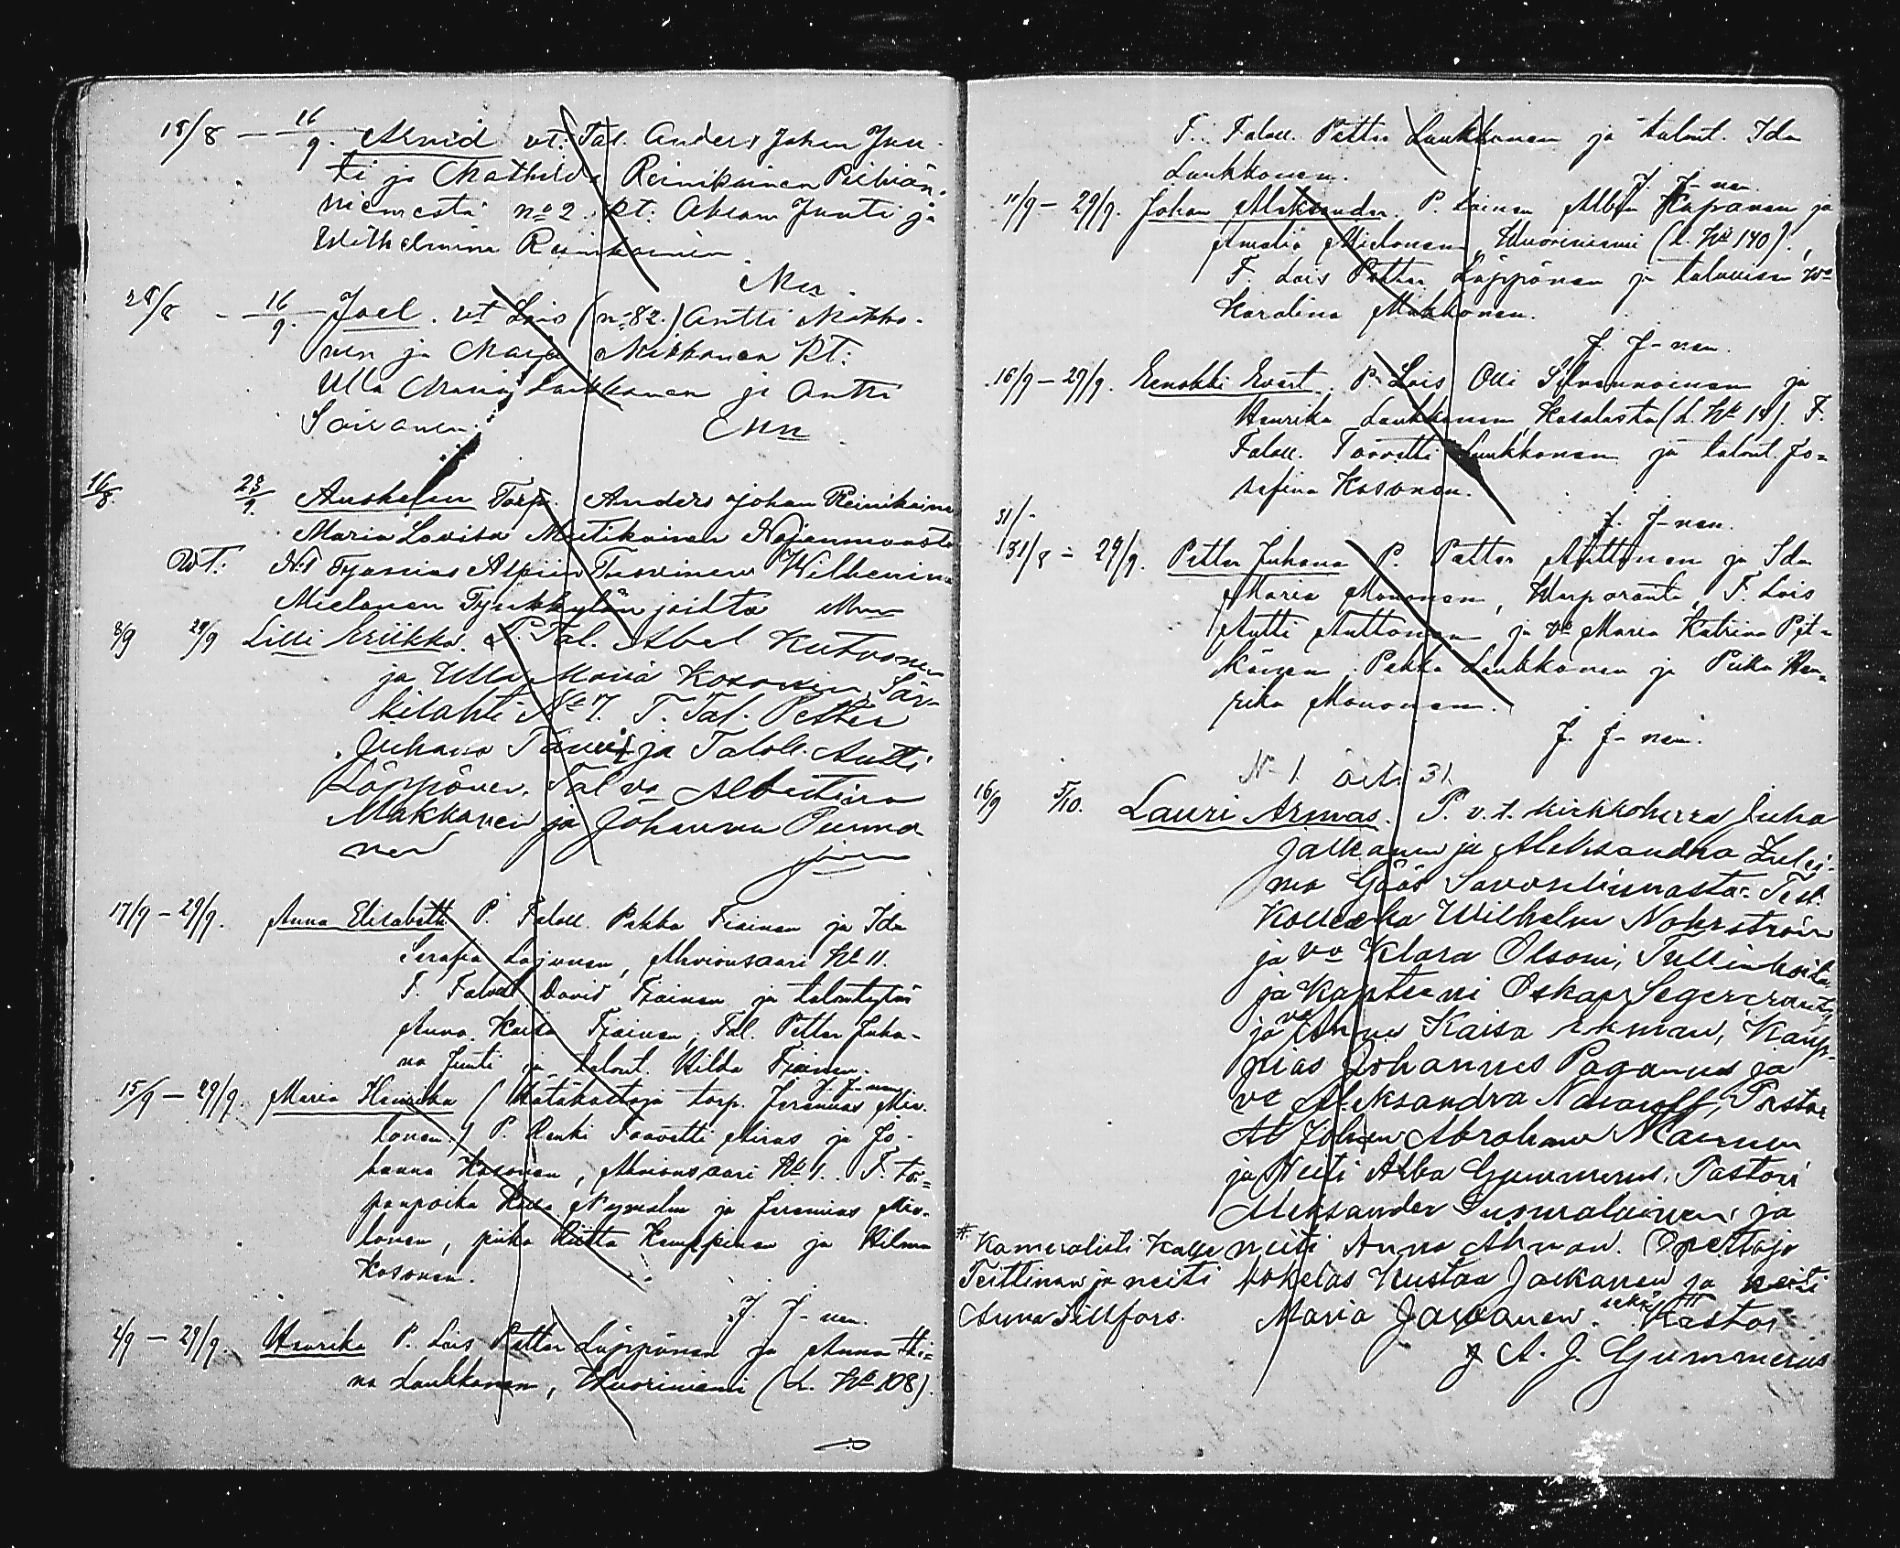 18/8 — 16/9. Arvid vt: Tal. Anders Johan Jun-
ti ja Mathilda Reinikainen Pielvän-
niemestä no 2. kt: Abram Junti ja
Wilhelmina Reinikainen.
28/8 - 16/9. Joel. vt Lois (no 82.) Antti Mikko-
nen ja Maija Mikkonen kt:
Ulla Maria Laukkanen ja Antti
Soivanen.
16/8. 23/9. Torp. Anders Johan Reinikainen
Maria Lovisa Mutikainen
No 1 Alpiin Tuovinen Wilhemina
Mielonen Tynkkylän joilta
8/9 29/9 Lilli Eriikka. P. Tal. Abel Kutvonen
ja Ulla Maria Kosonen, Sär-
kilahti No 7. T. Tal. Petter
Juhana Tauri ja Taloll. Antti
Löppönen. Tal vo Albertina
Makkonen ja Johanna Purmo
nen
17/9 — 29/9. Anna Elisabeth P. Taloll. Pekka Tiainen ja Ida
Serafia Lajunen, Ahvionsaari No 11.
T. Taloll. David Tiainen ja talontytär
Anna Kaisa Tiainen, Tal. Petter Juha-
na Junti ja talont. Hilda Tiainen.
J. J-nen
15/9 — 29/9. Maria Henrika (Hätäkastaja torp. Jeremias Mie-
lonen.) P. Renki Taavetti Airas ja Jo-
hanna Kosonen, Ahvionsaari No 1. T. ta-
lonpoika Kalle Nyman ja Jeremias Mie-
lonen, piika Riitta Kemppinen ja Hilma
Kosonen.
J. J-nen.
2/9 — 29/9. Henrika P. Lois Petter Löppönen ja Anna Hi-
na Laukkanen, Vuoriniemi (L. No 108).
T. Taloll. Petter Laukkanen ja talont. Ida
Laukkanen.
J. J-nen.
11/9 — 29/9. Johan Aleksander. P. Loinen Albin Kapanen ja
Amalia Mielonen, Vuoriniemi (L. No 140).
T. Lois Petter Löppönen ja talollisen vo
Karolina Makkonen.
J. J-nen.
16/9 — 29/9. Eenokki Evert. P. Lois Olli Silvennoinen ja
Henrika Laukkanen, Kosolasta (L. No 14). T.
Taloll. Taavetti Laukkanen ja talont. Jo-
sefina Kosonen.
J. J-nen.
31/-
31/8 — 29/9. Petter Juhana P. Petter Auttonen ja Ida
Maria Mononen, Varparanta. T. Lois
Antti Auttonen ja vo Maria Katrina Pit-
känen. Pekka Laukkanen ja Piika Hen-
rika Mononen.
J. J-nen.
No 1. 31.
16/9 5/10. Lauri Armas. P. v.t. kirkkoherra Juha
Jalkanen ja Aleksandra Zuli-
ma Göös Savonlinnasta. Test.
Wilhelm Nohrström
ja vo Klara Olsoni, Tullinhoitaja
ja Kapteeni Oskar Segercrantz
ja vo Anna Kaisa Ekman, Kaup-
pias Johannes Paganus ja
vo Aleksandra Pastor
Johan Abraham
ja Neiti Alba Gummerus, Pastori
Aleksander Summalainen ja
neiti Anna Åhman. Opettaja
kokelas Kustaa Jalkanen ja neiti
Maria Jalkanen. sekä Pastori
A. J. Gummerus
* Kameralisti Kalle
Terttinen ja neiti
Anna Tillfors.